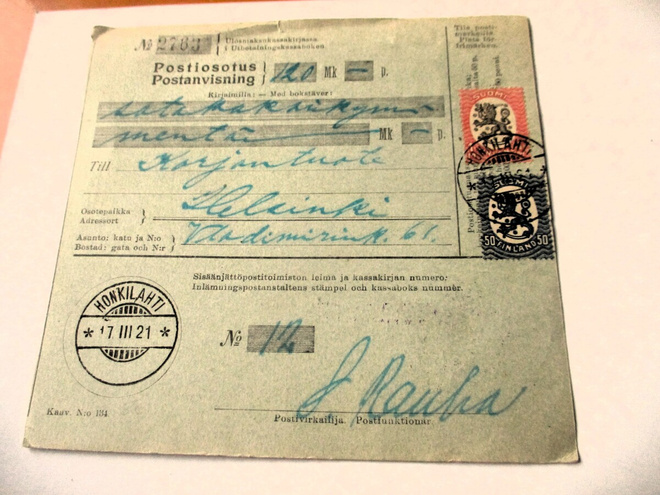 № 2763 Ulosmaksukassakirjassa
i Utbetalningskassaboken
Postiosotus
Postanvisning 120 Mk — p.
Kirjaimilla: — Med bokstäver:
satakaksikym-
mentä Mk — p.
Till Korjantuote
Helsinki
Osotepaikka
Adressort
Asunto: katu ja N:o
Bostad: gata och N:r
Vladimirink. 61.
Tila posti-
merkeille
Plats för
frimärken.
SUOMI
HONKILAHTI
SUOMI
50 FINLAND 50
Sisäänjättöpostitoimiston leima ja kassakirjan numero:
Inlämningspostanstaltens stämpel och kassaboks nummer.
HONKILAHTI
* 17 III 21 *
№ 12
J Rauha
Postivirkailija. Postfunktionär.
Kaav. N:o 134